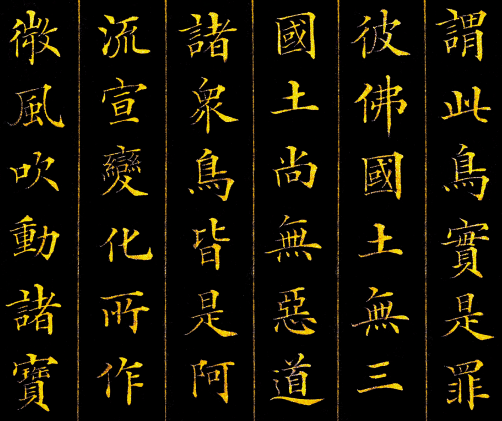 謂此鳥實是罪
彼佛國土無三
國土尚無惡道
諸衆鳥皆是阿
流宣變化所作
微風吹動諸寶